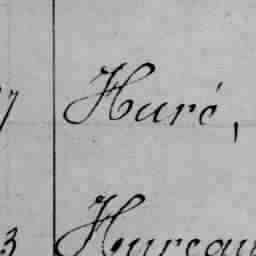 7 Huré,
3 Hureau